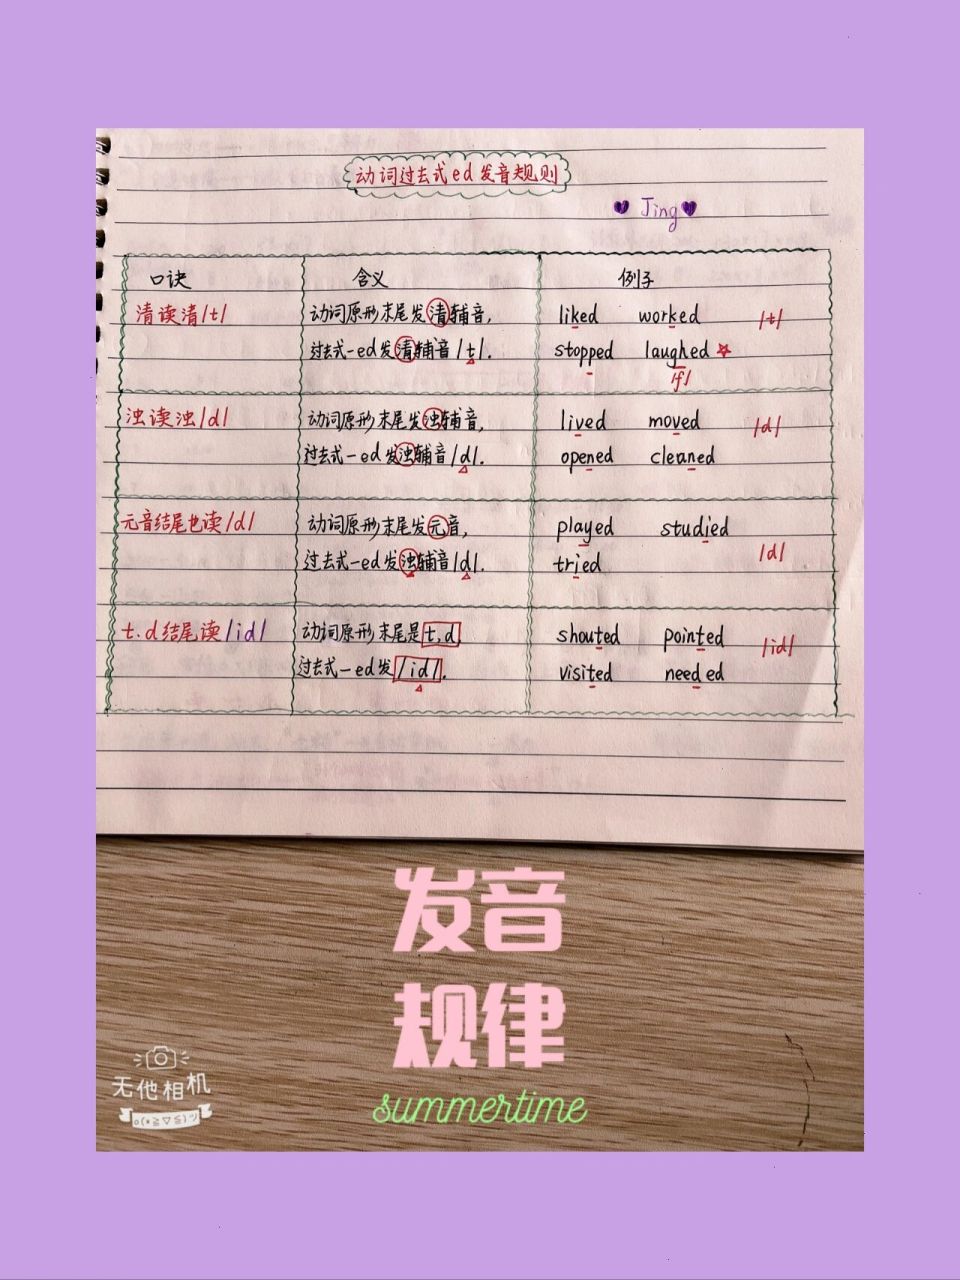 动词过去式ed发音规则
Jing
口诀 含义 例子
清读清/t/ 动词原形末尾发清辅音, liked worked /t/
过去式-ed发清辅音/t/. stopped laughed
/f/
浊读浊/d/ 动词原形末尾发浊辅音, lived moved /d/
过去式-ed发浊辅音/d/. opened cleaned
元音结尾也读/d/ 动词原形末尾发元音, played studied
过去式-ed发浊辅音/d/. tried /d/
t.d结尾读/id/ 动词原形末尾是t,d shouted pointed /id/
过去式-ed发/id/. visited needed
发音
规律
summertime
无他相机
o(*≧▽≦)ツ